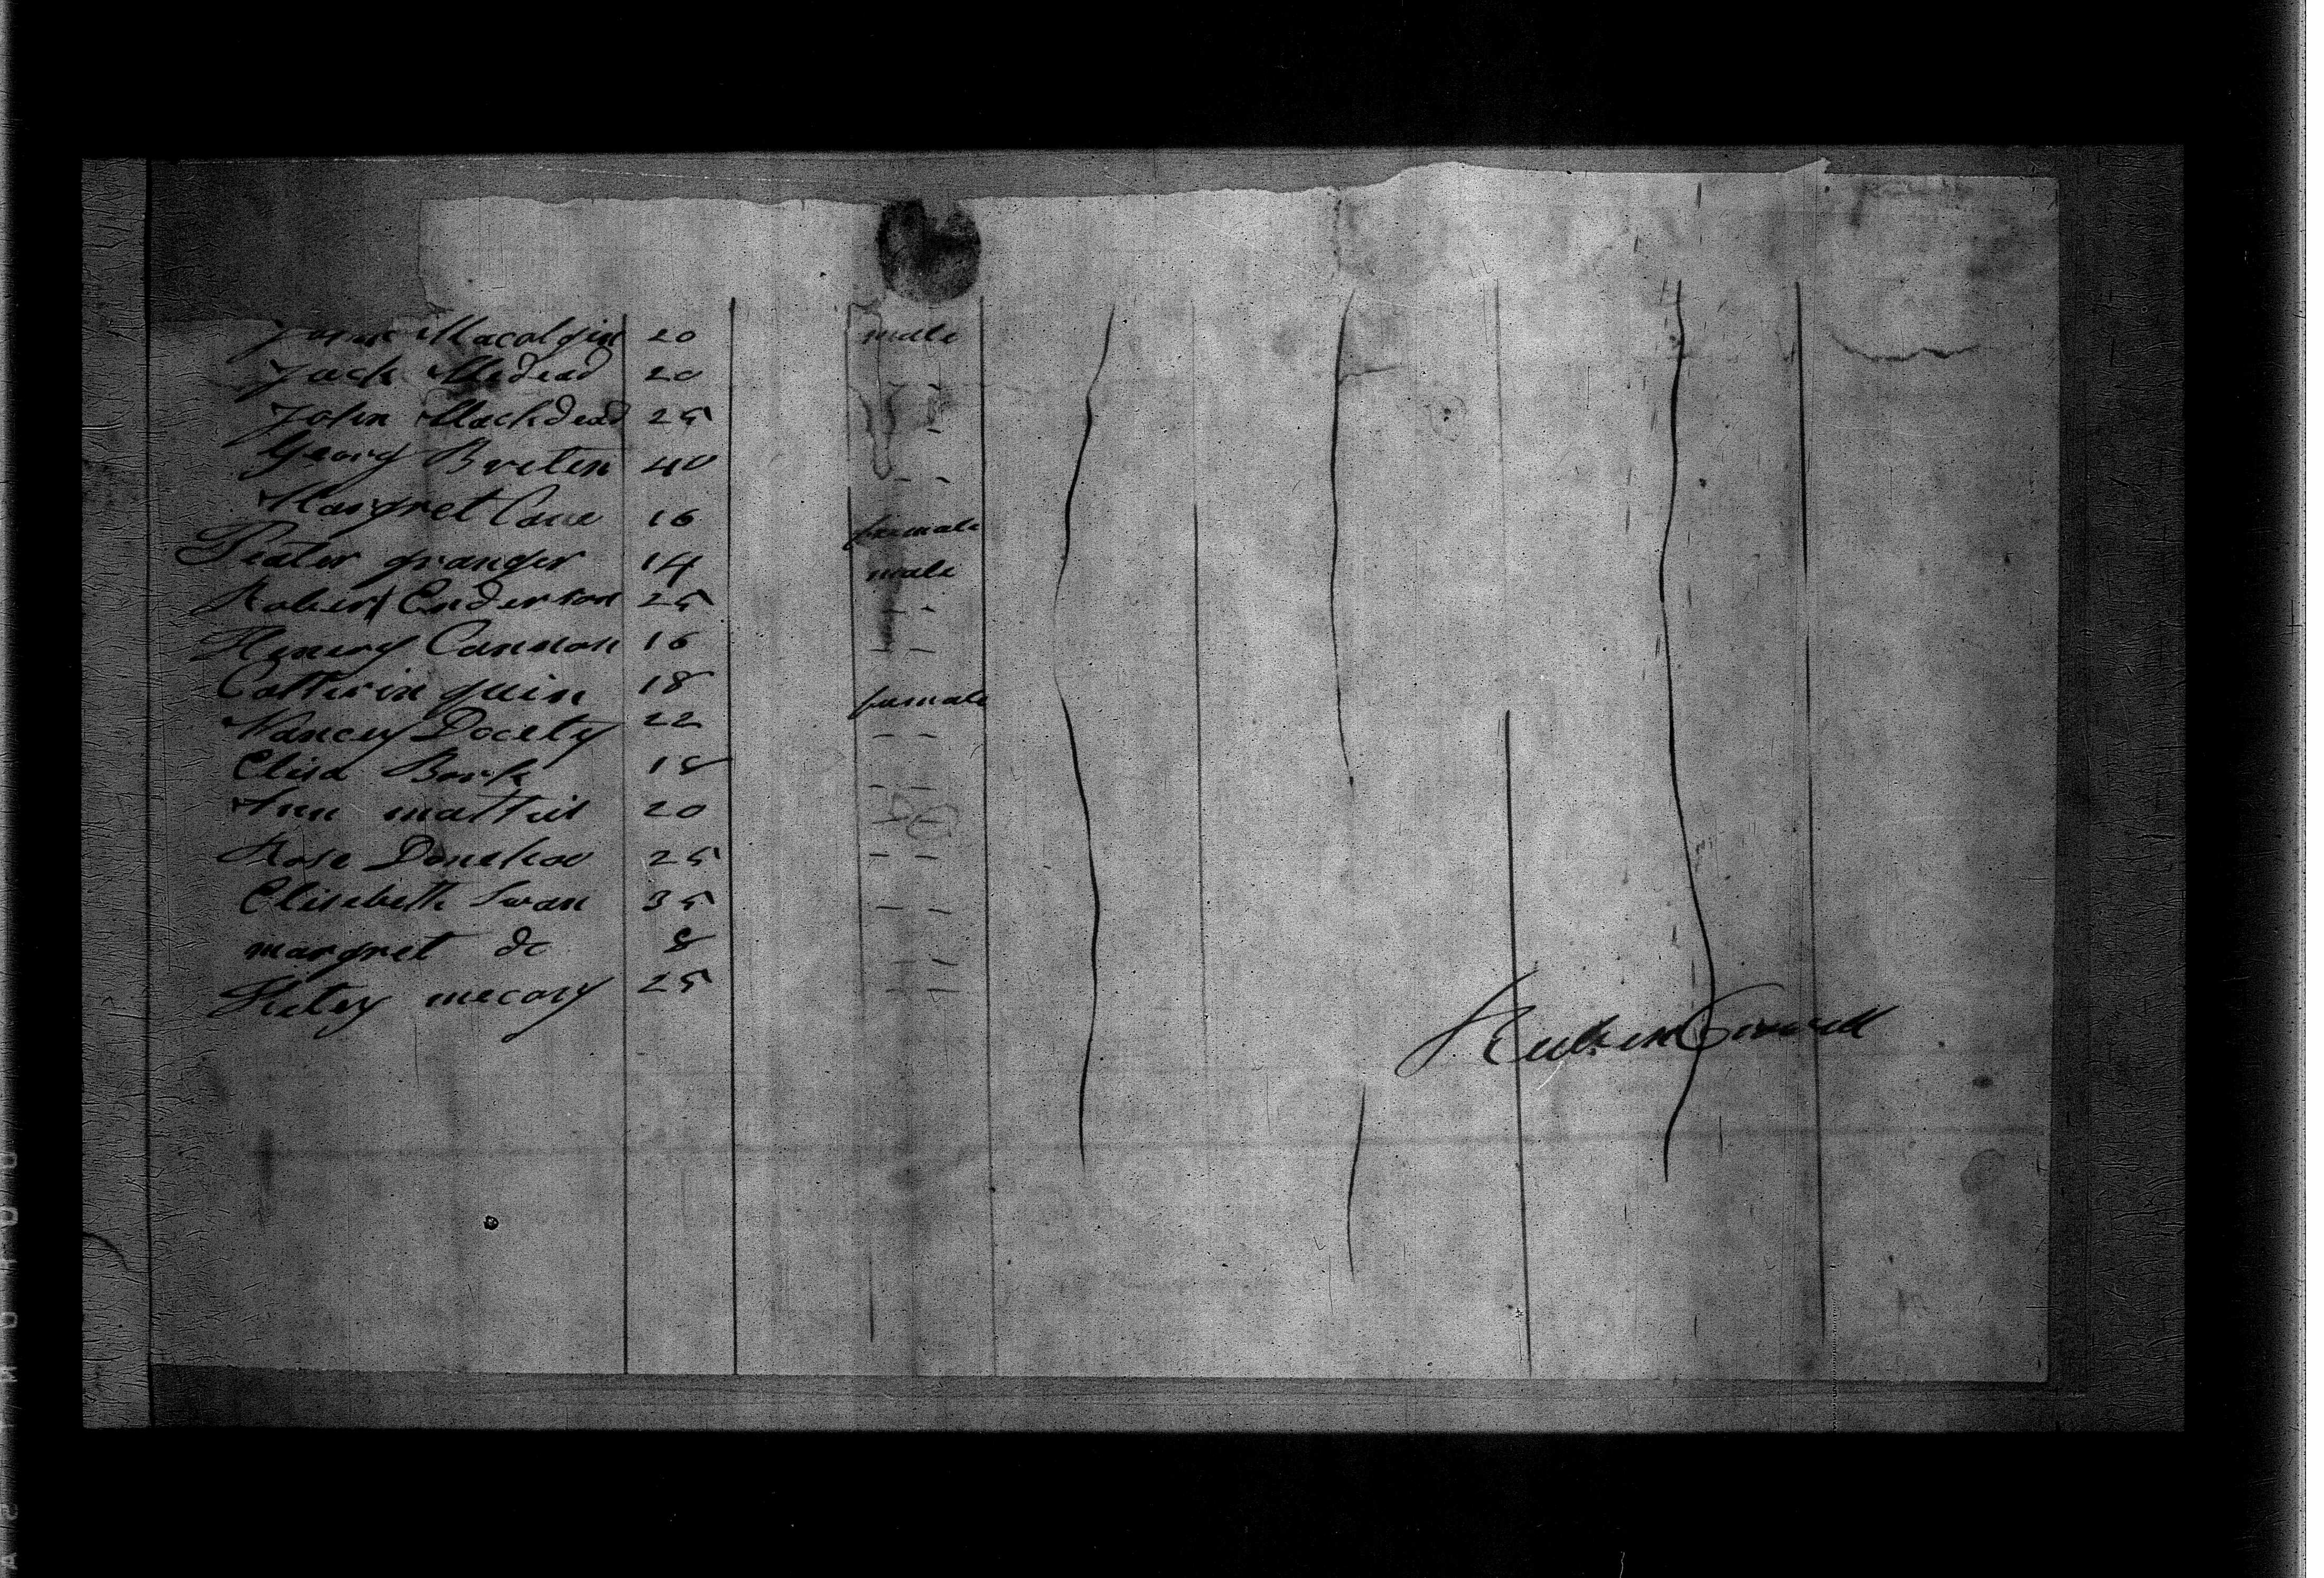 John Macolgin 20 male
Jack Medead 20 - -
John Mackdead 25 - -
Georg Breten 40 - -
Margret Cane 16 female
Peater granger 14 male
Robert Enderson 25 - -
Henery Cannon 16 - -
Catterin quin 18 female
Nancey Docety 22 - -
Elisa Bork 18 - -
Ann matties 20 - -
Rose Donehoo 25 - -
Elisebeth Swan 35 - -
margret do 8 - -
Kitey mecory 25 - -
Reuben